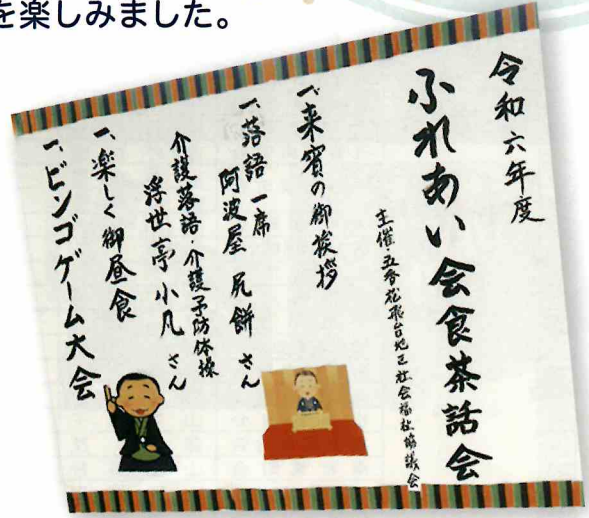 を楽しみました。
令和六年度
ふれあい会食茶話会
主催 五香松飛台地区社会福祉協議会
一、来賓の御挨拶
一、落語一席
阿波屋 尻餅 さん
介護落語・介護予防体操
浮世亭 小凡 さん
一、楽しく御昼食
一、ビンゴゲーム大会